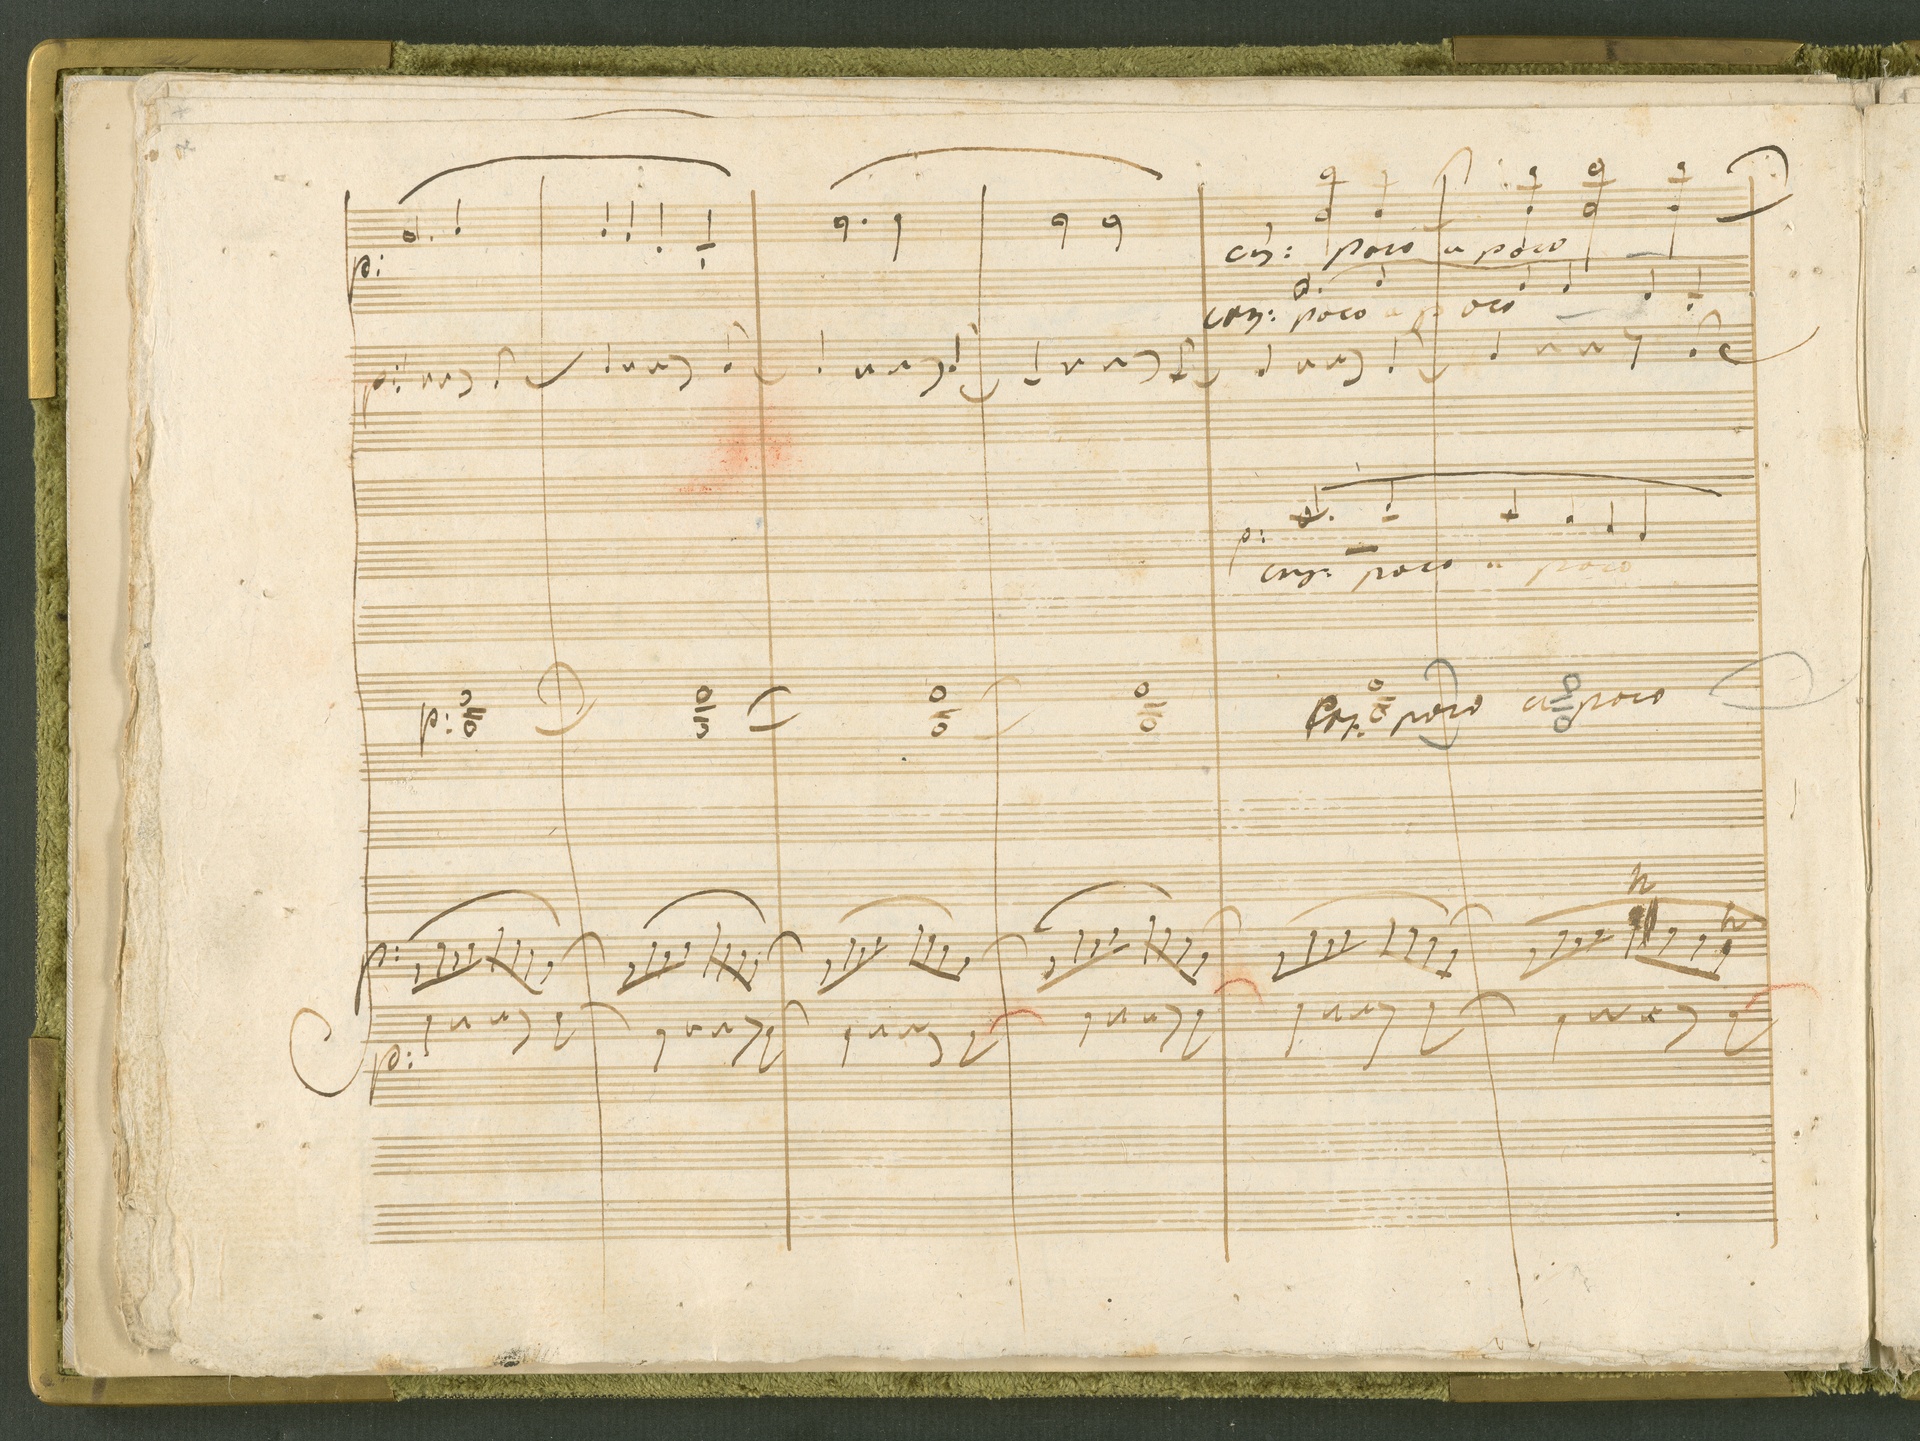 p:
cres: poco a poco
cres: poco a poco
p:
p:
cres: poco a poco
p:
cres: poco a poco
p:
p: